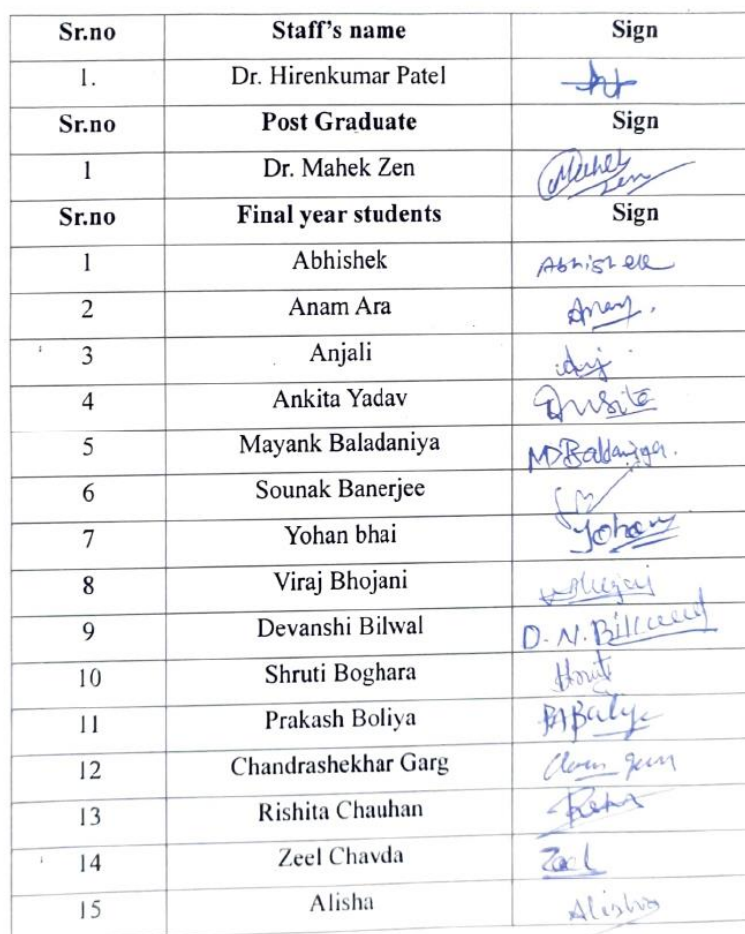 Sr.no Staff's name Sign
1. Dr. Hirenkumar Patel
Sr.no Post Graduate Sign
1 Dr. Mahek Zen Mahek Zen
Sr.no Final year students Sign
1 Abhishek Abhishek
2 Anam Ara
3 Anjali Anj
4 Ankita Yadav
5 Mayank Baladaniya MDBaldaniya.
6 Sounak Banerjee
7 Yohan bhai Yohan
8 Viraj Bhojani
9 Devanshi Bilwal D. N. Bilwal
10 Shruti Boghara
11 Prakash Boliya
12 Chandrashekhar Garg
13 Rishita Chauhan
14 Zeel Chavda Zeel
15 Alisha Alisha